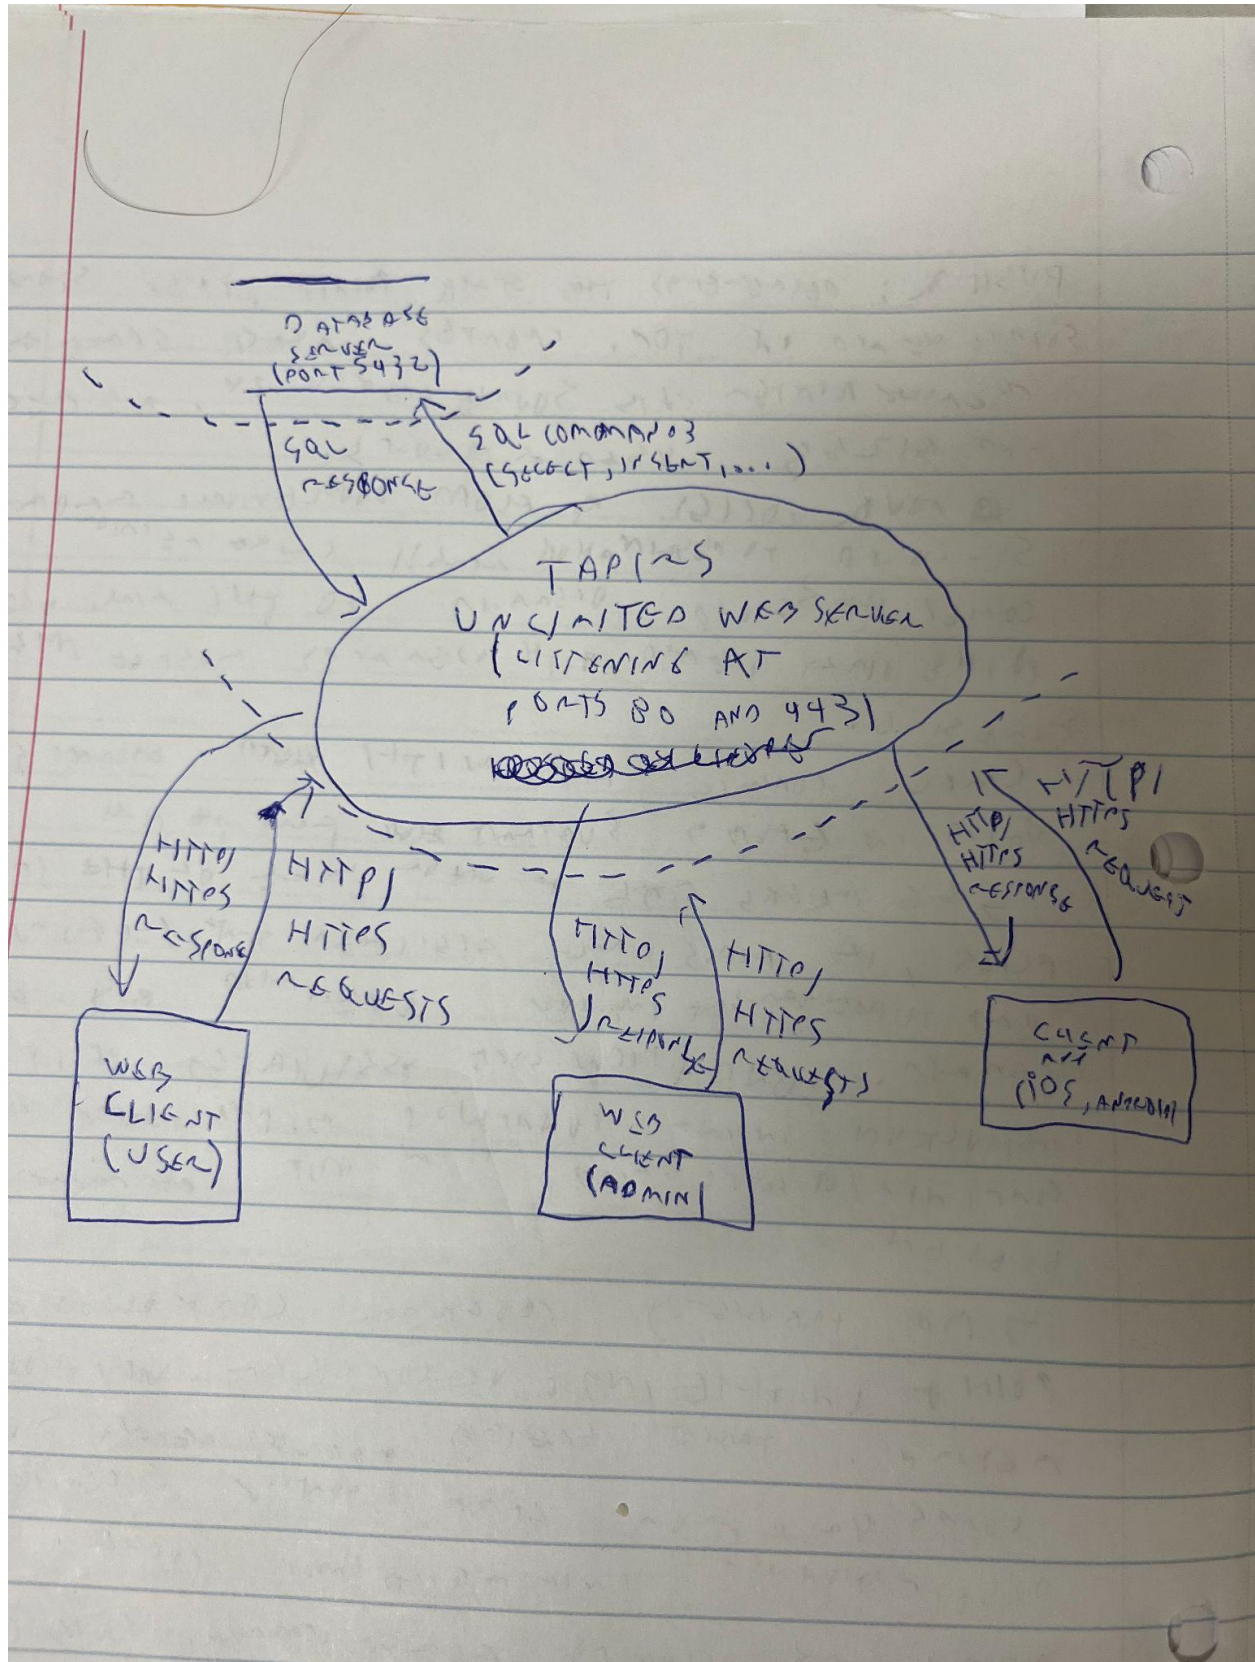 DATABASE
SERVER
(PORT 5432)
SQL
RESPONSE
SQL COMMANDS
(SELECT, INSERT, ...)
TAPIRS
UNLIMITED WEB SERVER
(LISTENING AT
PORTS 80 AND 443)
HTTP/
HTTPS
RESPONSE
HTTP/
HTTPS
REQUESTS
HTTP/
HTTPS
RESPONSE
HTTP/
HTTPS
REQUESTS
HTTP/
HTTPS
RESPONSE
HTTP/
HTTPS
REQUEST
WEB
CLIENT
(USER)
WEB
CLIENT
(ADMIN)
CLIENT
(iOS, ANDROID)